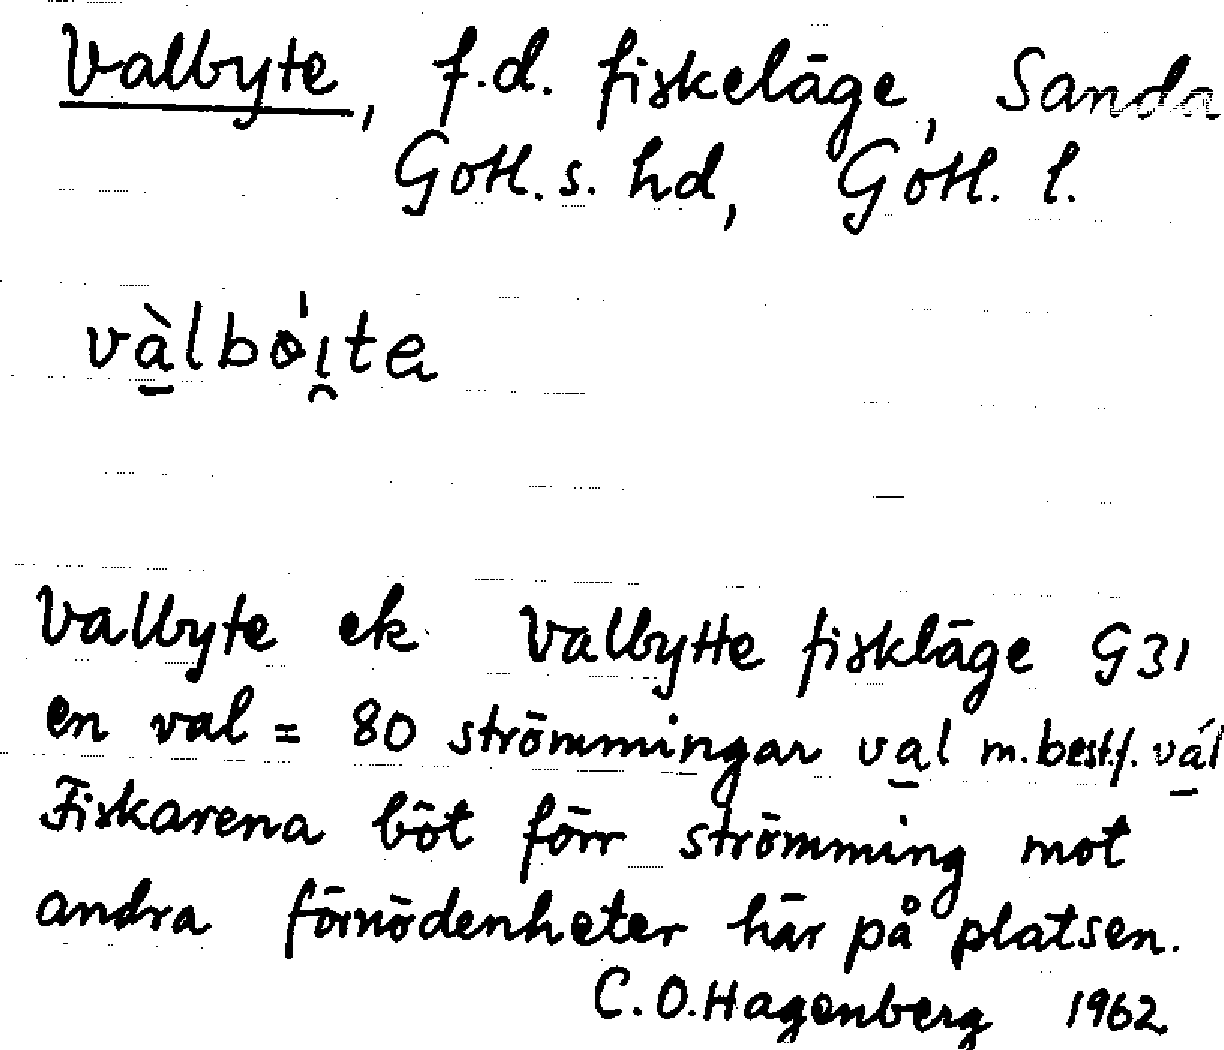 Valbyte, f.d. fiskeläge, Sanda
Gotl. s. hd, Gotl. l.
và̱lbo̍i̯te
Valbyte ek Valbytte fiskläge G31
en val = 80 strömmingar va̱l m. best.f. vá̱l
Fiskarena böt förr strömming mot
andra förnödenheter här på platsen.
C.O.Hagenberg 1962